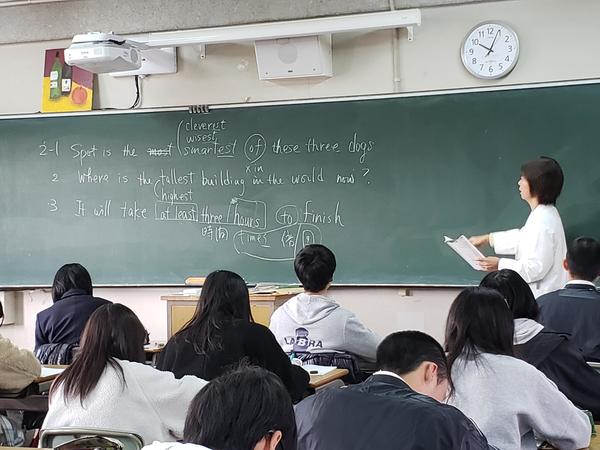 cleverest
wisest
2-1 Spot is the most smartest of these three dogs
x in
2 Where is the tallest building in the world now?
highest
3 It will take at least three hours to finish
時間 times 倍 回